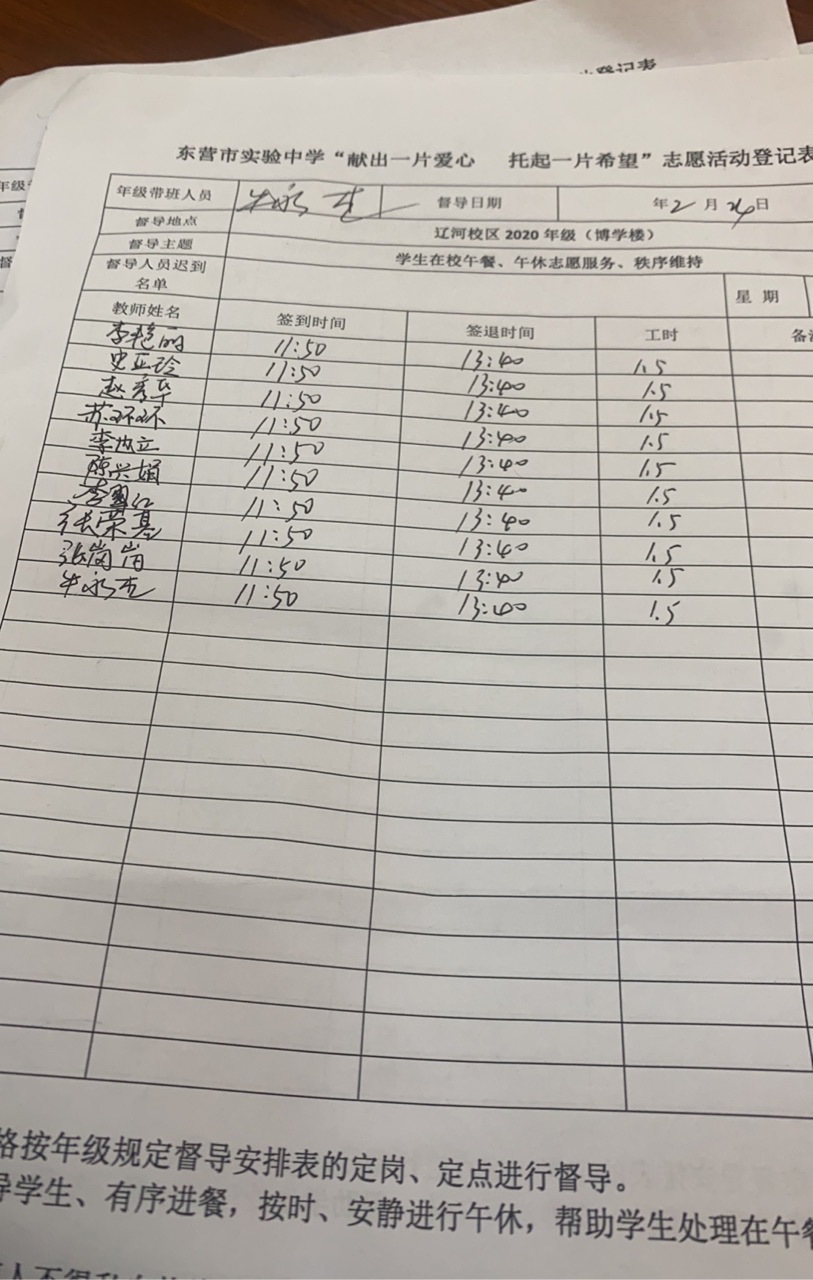 登记表
东营市实验中学“献出一片爱心 托起一片希望”志愿活动登记表
年级带班人员 牛永杰 督导日期 年2月24日
督导地点 辽河校区 2020 年级（博学楼）
督导主题 学生在校午餐、午休志愿服务、秩序维持
督导人员迟到名单 星 期
教师姓名 签到时间 签退时间 工时
李艳丽 11:50 13:40 1.5
史亚玲 11:50 13:40 1.5
赵秀华 11:50 13:40 1.5
苏环环 11:50 13:40 1.5
李 立 11:50 13:40 1.5
陈兴娟 11:50 13:40 1.5
李 红 11:50 13:40 1.5
张荣基 11:50 13:40 1.5
张岗岗 11:50 13:40 1.5
牛永杰 11:50 13:40 1.5
格按年级规定督导安排表的定岗、定点进行督导。
导学生、有序进餐，按时、安静进行午休，帮助学生处理在午餐